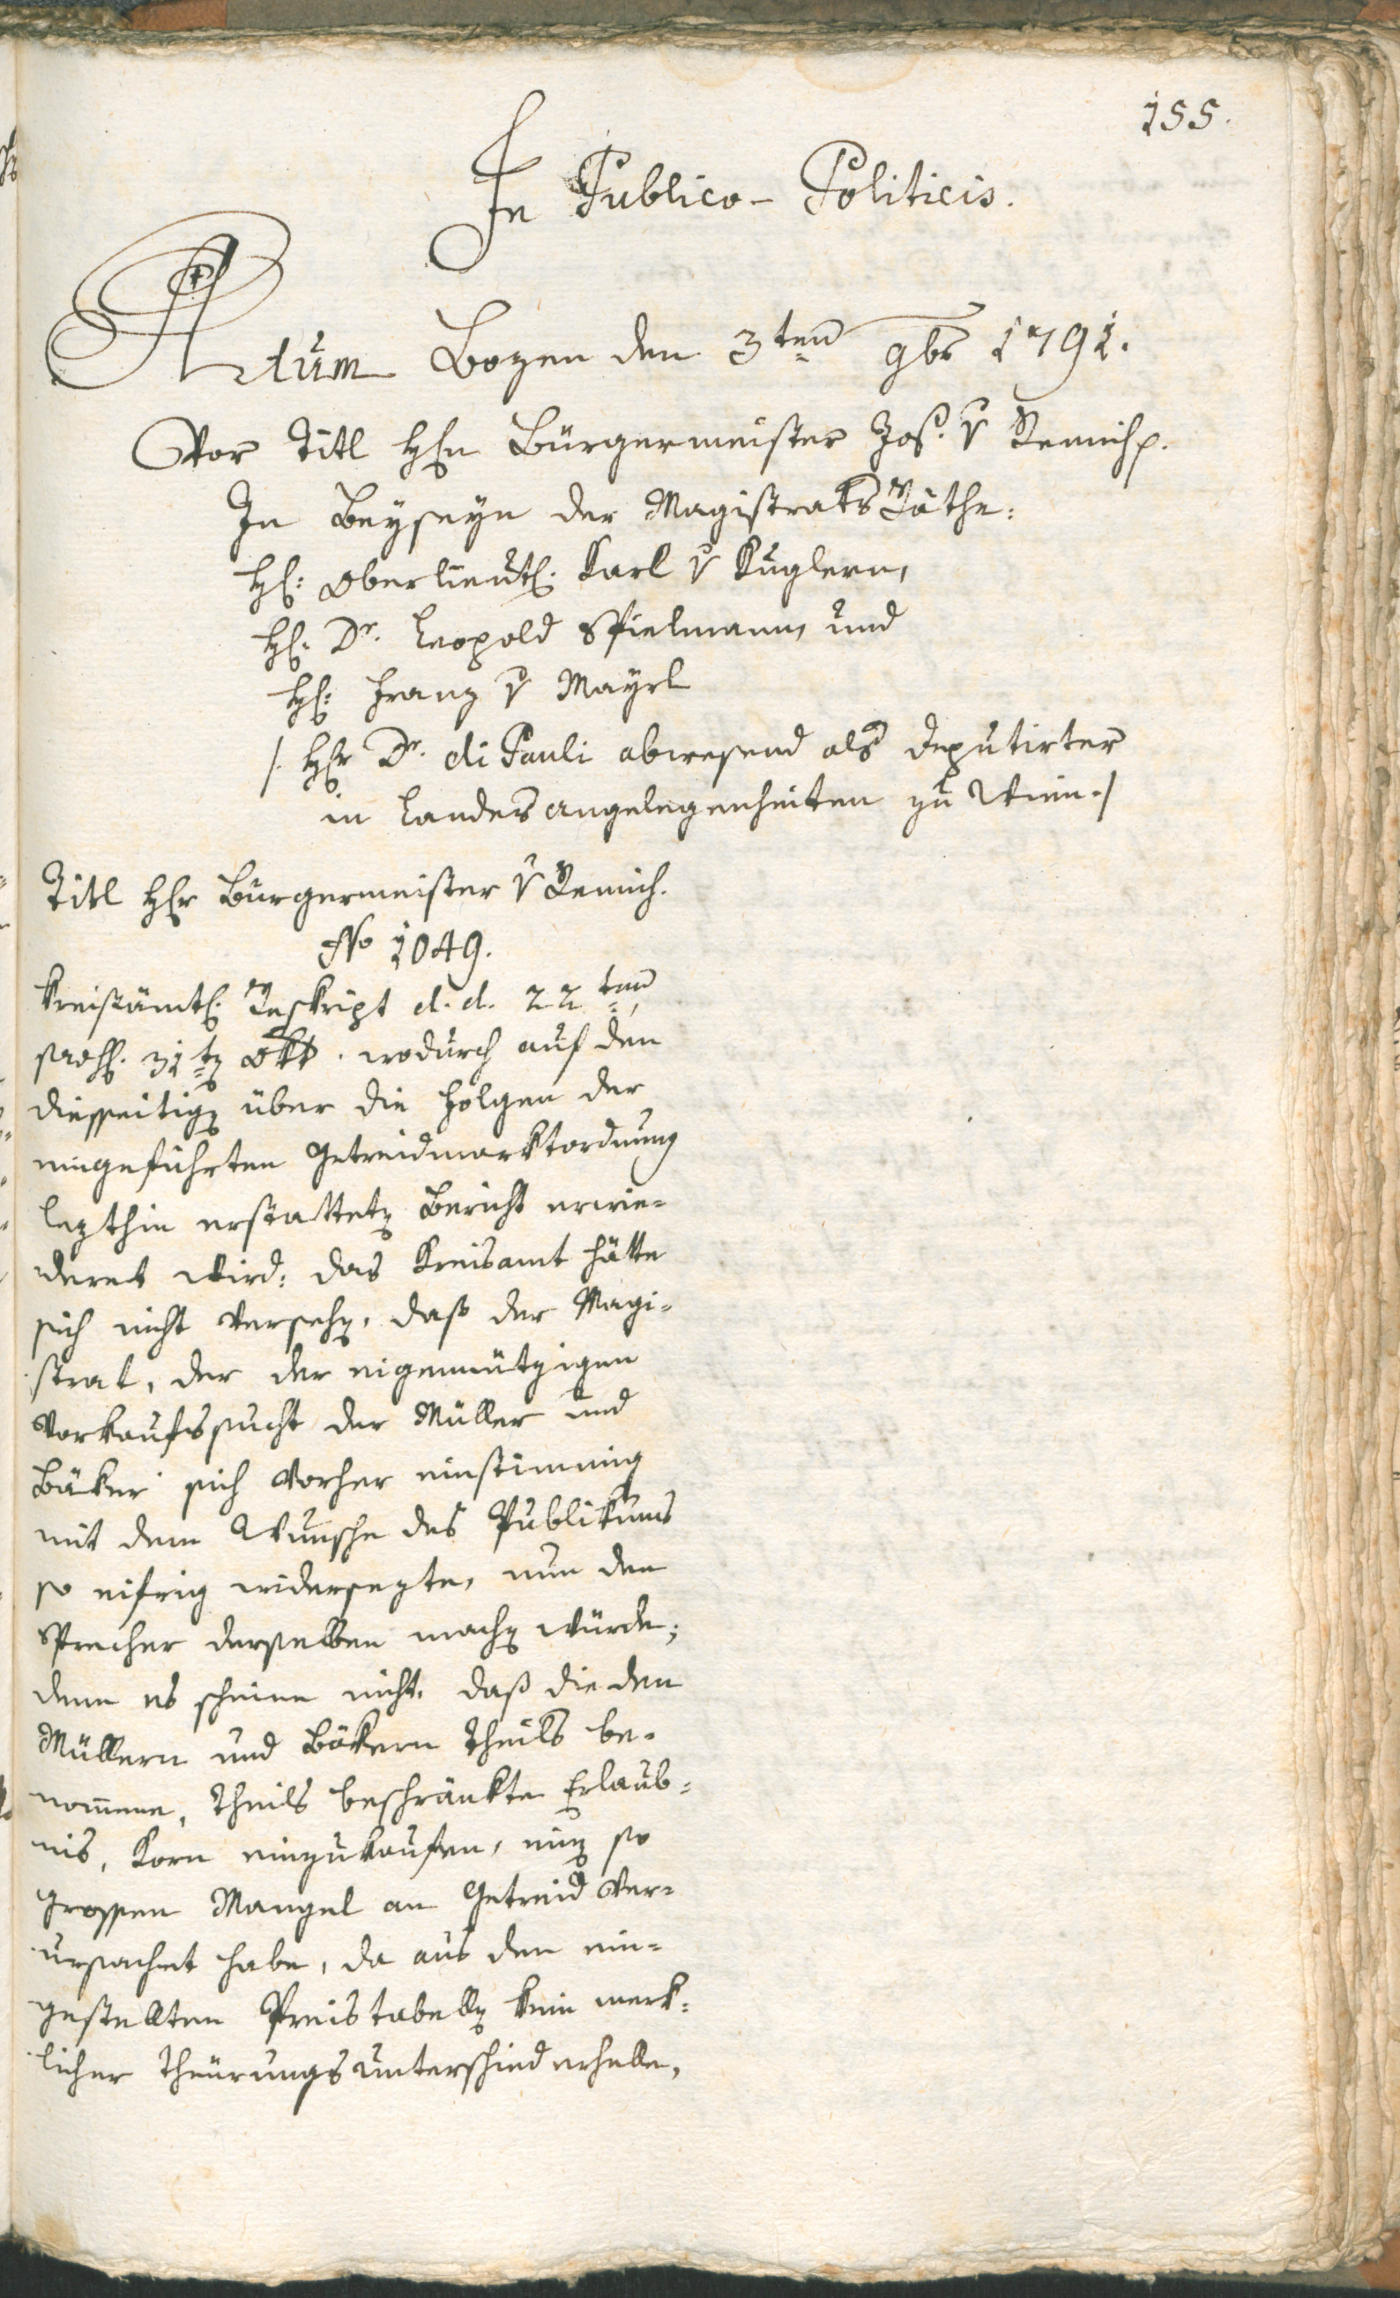 155.
In Publico-Politicis.
Actum Bozen den 3ten 9br 1791.
Vor Titl Hhn Bürgermeister Jos. v Remich.
In Beyseyn der Magistraks Räthe:
Hh: Oberlieut. Karl v Kuglern,
Hh. Dr. Leopold Spielmann, und
Hh: Franz v Mayrl
/. Hhr Dr. di Pauli abwesend als Deputirter
in Landes angelegenheiten zu Wien. /
Titl Hhr Bürgermeister v Remich.
No 1049.
Kreisämtl. Reskript d. d. 22ten,
31 Okt. wodurch auf den
diesseitigen über die Folgen der
eingeführten Getreidmarktordnung
lezthin erstatteten Bericht erwie=
deret wird: das Kreisamt hätte
sich nicht versehen, daß der Magi=
strat, der der eigennützigen
Vorkaufssucht der Müller und
Bäker sich vorher einstimmig
mit dem Wunsche des Publikums
so eifrig widersezte, nun den
Sprecher derselben machen würde;
denn es scheine nicht, daß die den
Müllern und Bäkern theils be=
nom̄ene, theils beschränkte Erlaub=
nis, Korn einzukaufen, einen so
grossen Mangel an Getreid ver=
ursachet habe, da aus den ein=
gestellten Preistabellen kein merk=
licher Theurungs Unterschied erhelle,